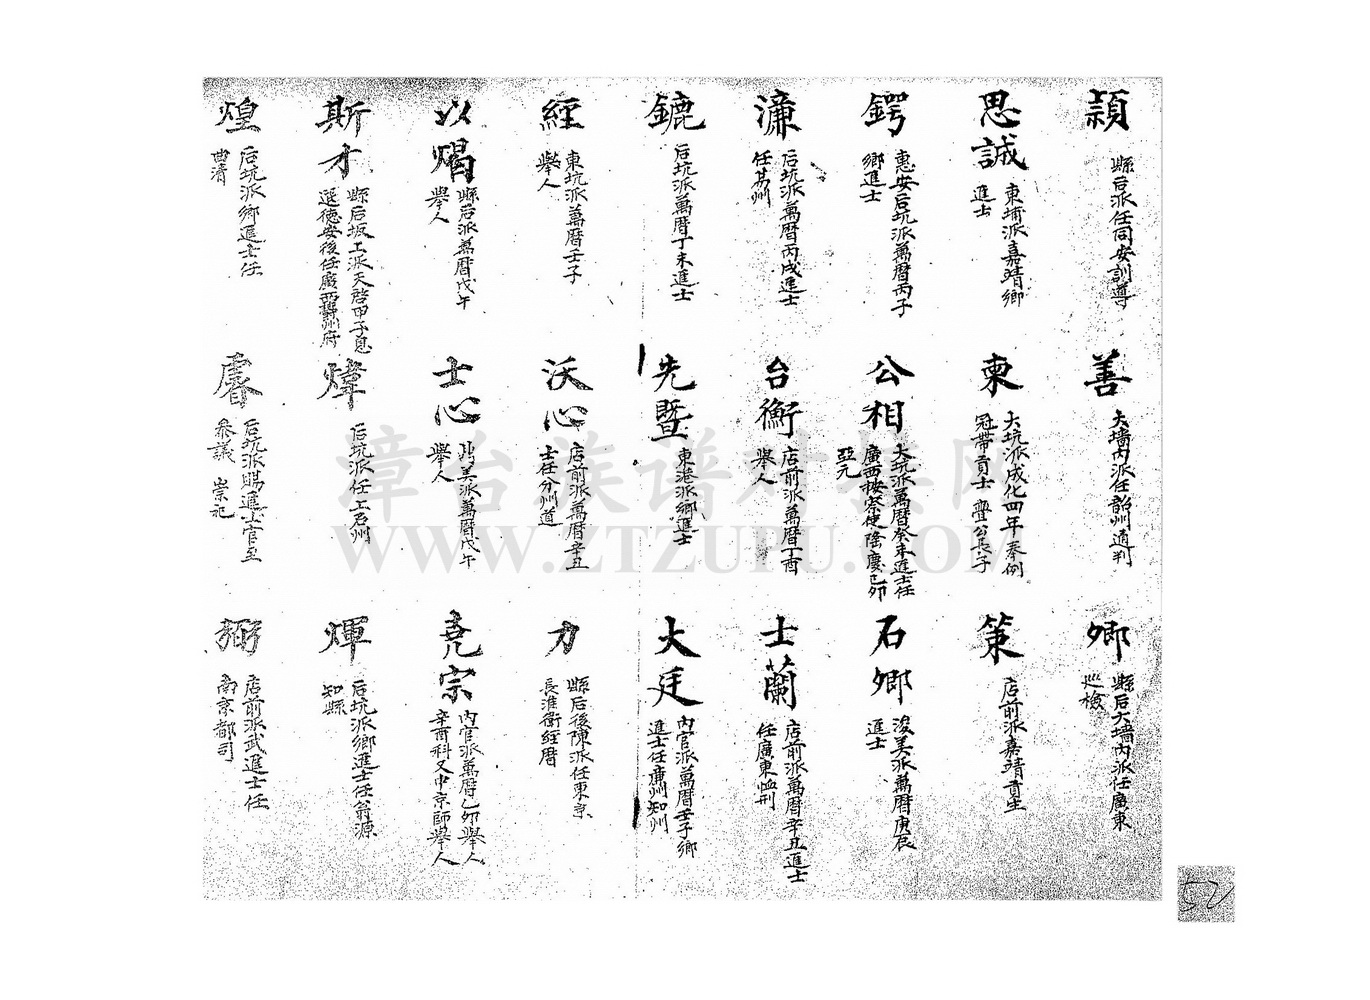 穎
縣后派任同安訓導
思誠
東埔派嘉靖鄉
進士
鍔
惠安后坑派萬曆丙子
鄉進士
濂
后坑派萬曆丙戌進士
任其州
鑣
后坑派萬曆丁未進士
經
東坑派萬曆壬子
舉人
以燭
縣后派萬曆戊午
舉人
斯才
縣后坂上派天啓甲子
選德安後任廣西
煌
后坑派鄉進士任
曲清
善
大墻內派任韶州通判
東
大坑派成化四年奉例
冠帶貢士 公長子
公相
大坑派萬曆癸未進士任
廣西按察使隆慶己卯
亞元
台衡
店前派萬曆丁酉
舉人
先暨
東港派鄉進士
沃心
店前派萬曆辛丑
士任分州道
士心
美派萬曆戊午
舉人
煒
后坑派任上石州
睿
后坑派賜進士官至
參議 崇祀
卿
縣后大墻內派任廣東
巡檢
策
店前派嘉靖貢生
石卿
浚美派萬曆庚辰
進士
士蘭
店前派萬曆辛丑進士
任廣東恤刑
大廷
內官派萬曆壬子鄉
進士任廉州知州
力
縣后後陳派任東京
長淮衛經曆
堯宗
內官派萬曆乙卯舉人
辛酉科又中京師舉人
煇
后坑派鄉進士任翁源
知縣
弼
店前派武進士任
南京都司
漳台族谱对接网
WWW.ZTZUPU.COM
52